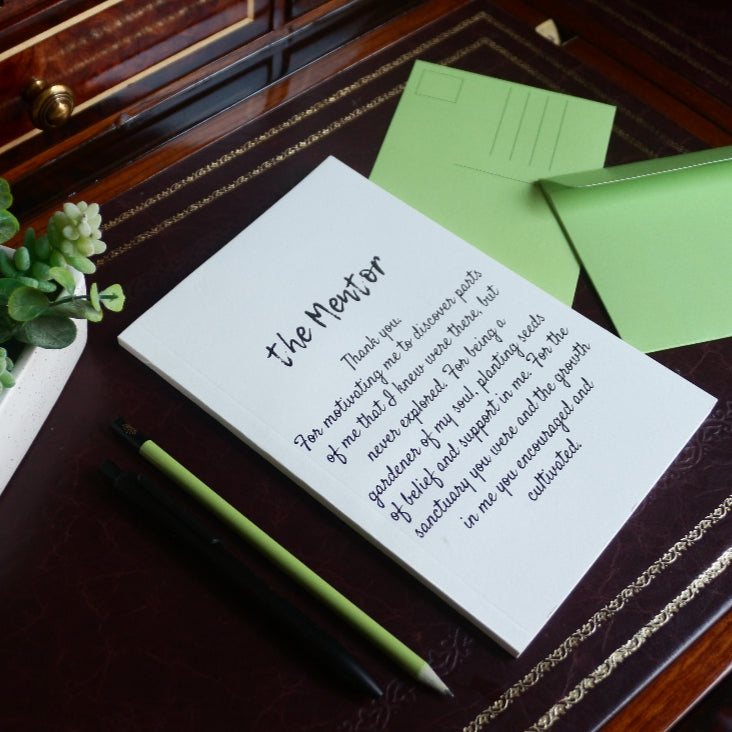 the Mentor
Thank you.
For motivating me to discover parts
of me that I knew were there, but
never explored. For being a
gardener of my soul, planting seeds
of belief and support in me. For the
sanctuary you were and the growth
in me you encouraged and
cultivated.